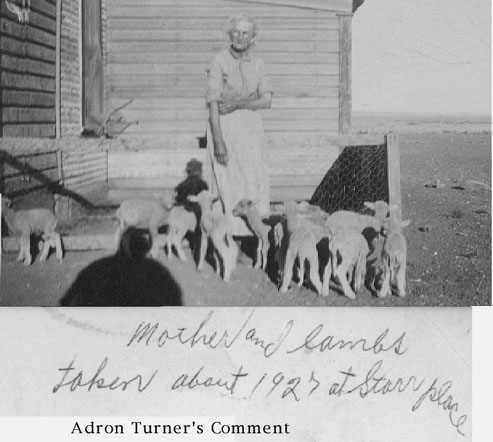 Mother and lambs
taken about 1927 at Starr place
Adron Turner's Comment